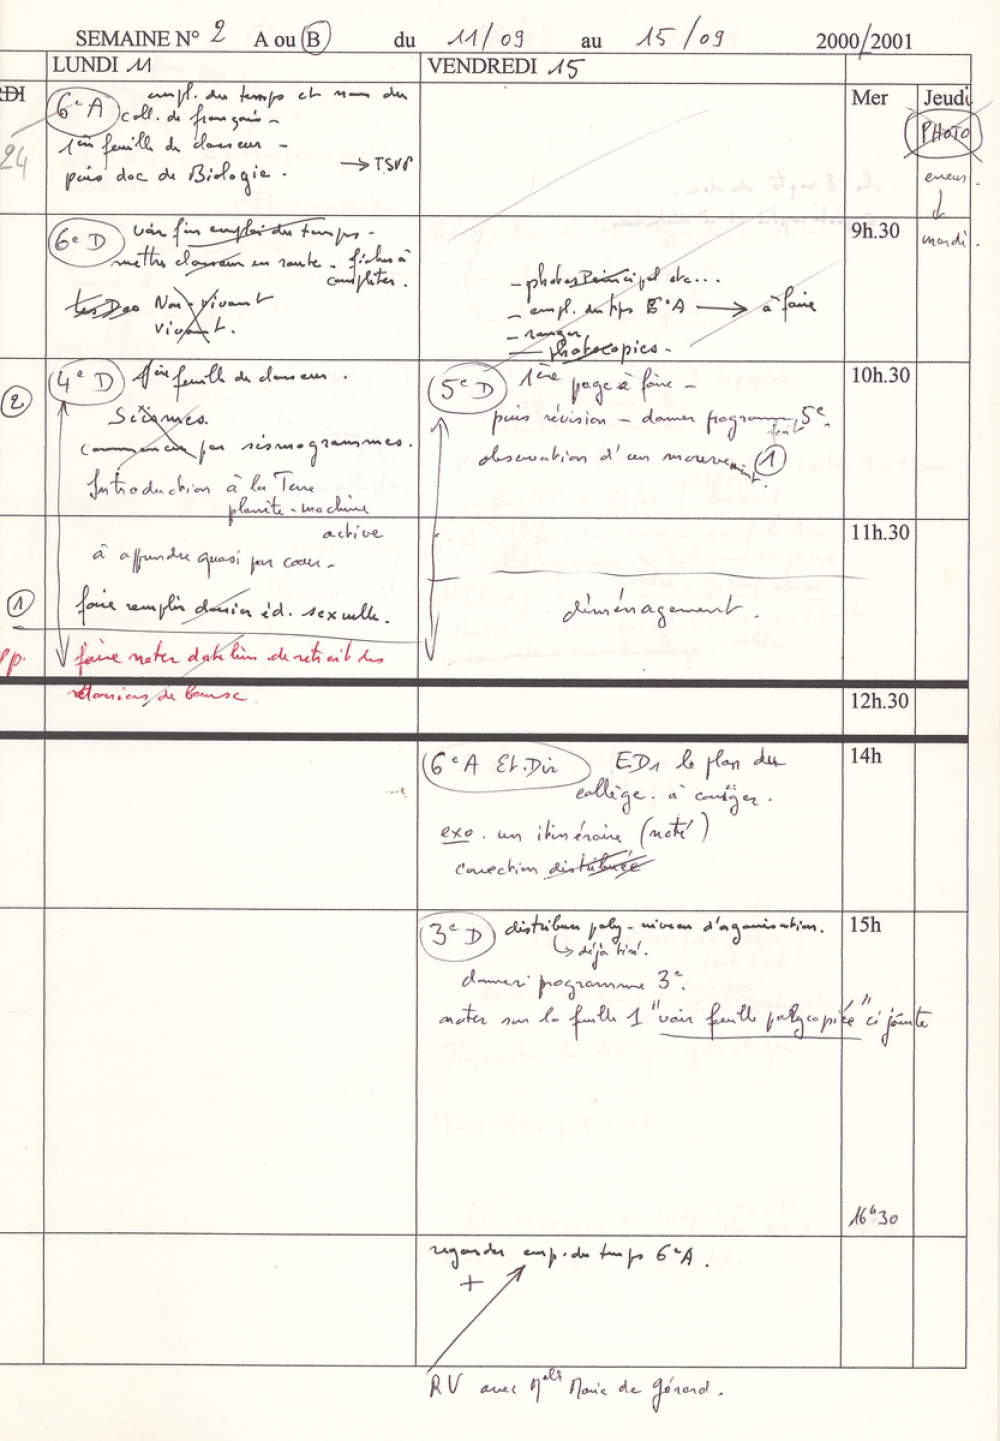 SEMAINE N° 2 A ou B du 11/09 au 15/09 2000/2001
LUNDI 11
VENDREDI 15
RDI
Mer
Jeudi
24
6e A
empl. du temps et nom du
coll. de français -
1ère feuille du classeur -
puis doc de Biologie.
→ TSVP
PHOTO
erreur.
↓
mardi.
6e D
voir fin emploi du temps -
mettre classeur en route - fiches à
compléter.
les Doo Non-vivant
vivant.
- photos Principal etc...
- empl. du tps 6e A → à faire
- ranger
- photocopies -
9h.30
2
4e D
1ère feuille du classeur.
Séismes.
commencer par sismogrammes.
Introduction à la Terre
planète-machine
active
à apprendre quasi par coeur -
1
faire remplir dossier éd. sexuelle.
pp.
faire noter date lim. de retrait des
dossiers de bourse.
5e D
1ère page à faire -
puis révision - donner programme 5e.
observation d'un mouvement. 1
déménagement.
10h.30
11h.30
12h.30
6e A Et. Dir
ED1 le plan du
collège. à corriger.
exo. un itinéraire (noté)
correction distribuée
14h
3e D
distribuer poly - niveau d'organisation.
↳ déjà tiré.
donner programme 3e.
noter sur la feuille 1 "voir feuille polycopiée" ci jointe
15h
16h30
regarder emp. du temps 6e A.
+
RV avec Melle Marie de Gérard.